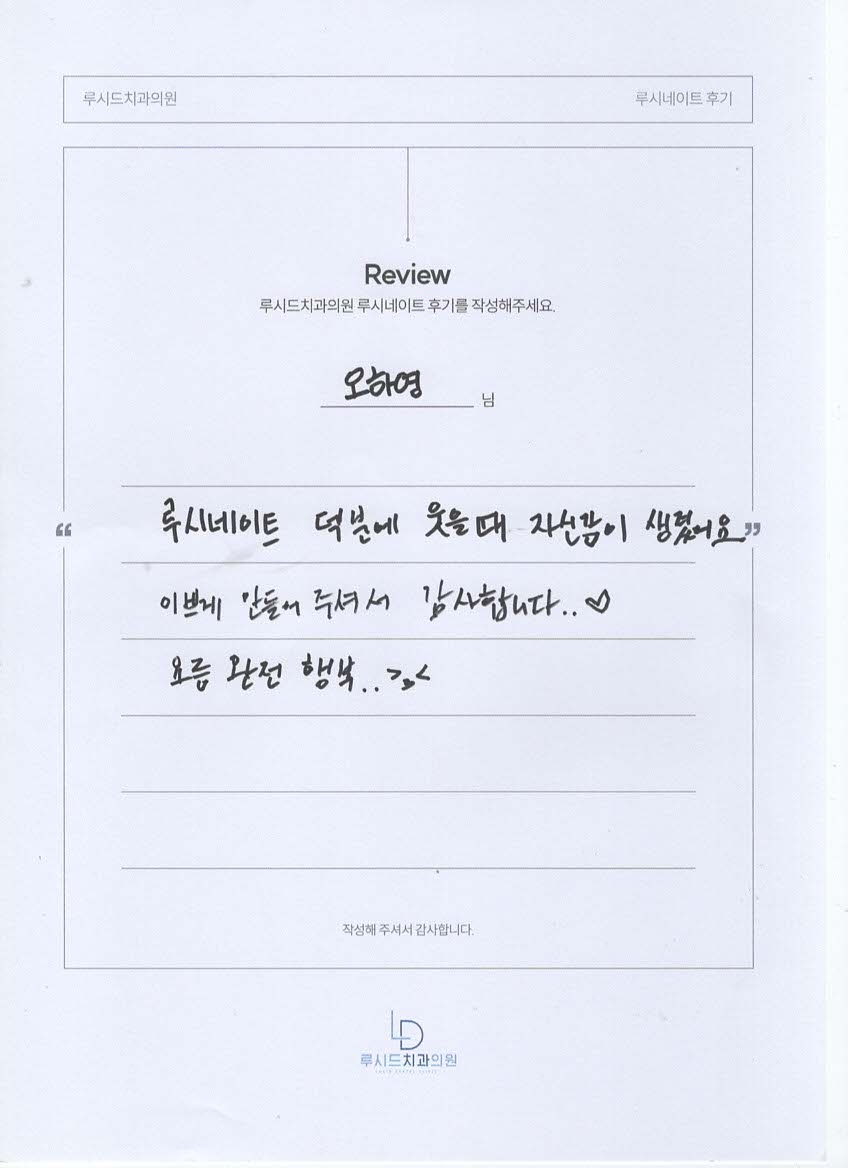 루시드치과의원
루시네이트 후기
Review
루시드치과의원 루시네이트 후기를 작성해주세요.
오하영 님
“ 루시네이트 덕분에 웃을때 자신감이 생겼어요 ”
이쁘게 만들어 주셔서 감사합니다..♡
요즘 완전 행복..>3<
작성해 주셔서 감사합니다.
LD
루시드치과의원
LUCID DENTAL CLINIC